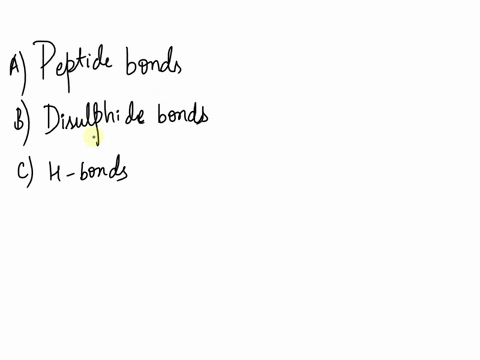 A) Peptide bonds
B) Disulphide bonds
C) H-bonds